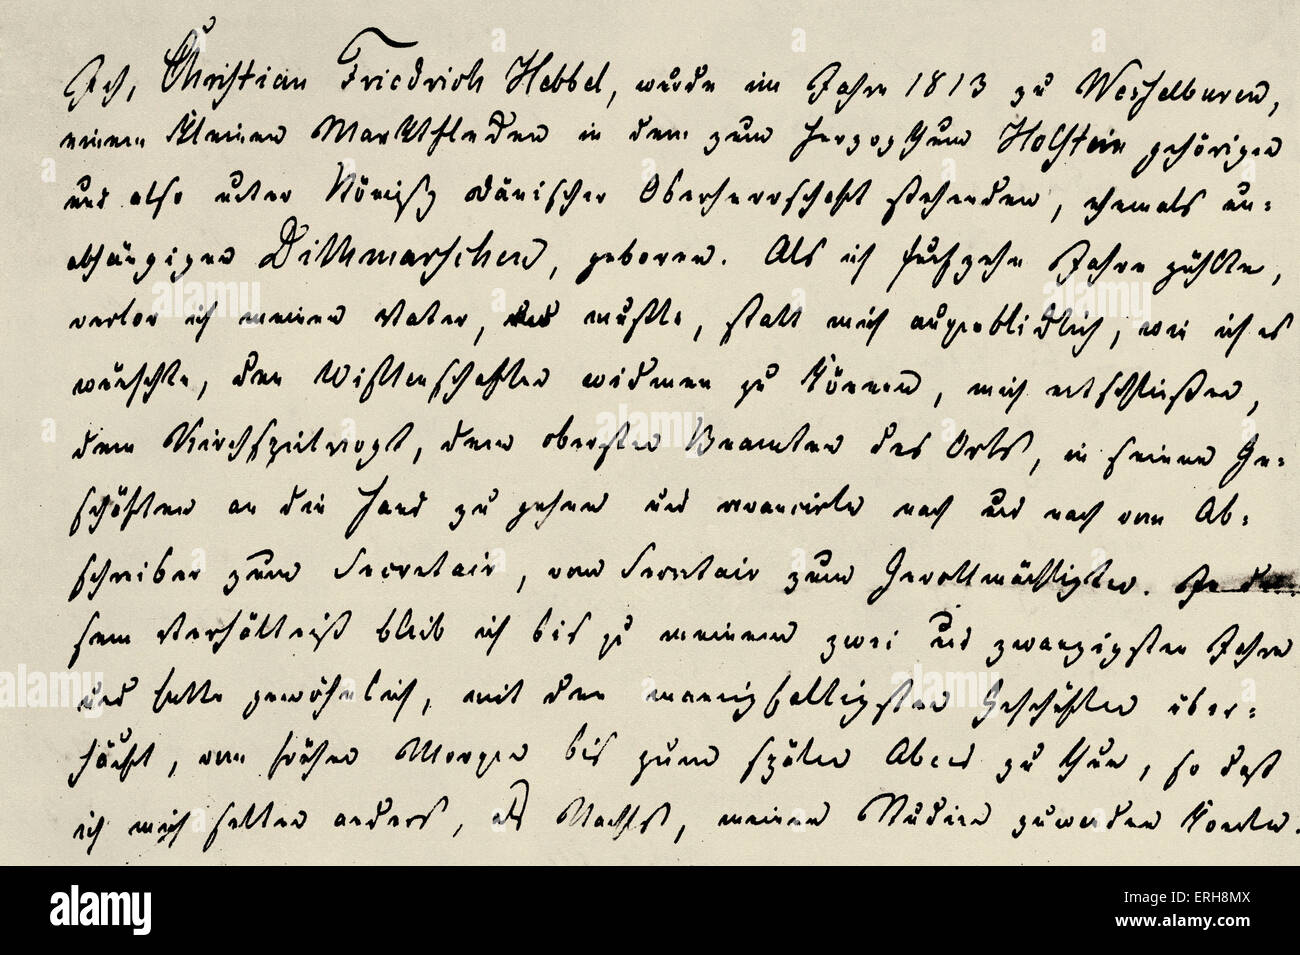 Ich, Christian Friedrich Hebbel, wurde im Jahre 1813 zu Wesselburen,
einem kleinen Marktflecken in dem zum Herzogthum Holstein gehörigen
und also unter Königl. dänischer Oberherrschaft stehenden, ehemals un-
abhängigen Dithmarschen, geboren. Als ich funfzehn Jahre zählte,
verlor ich meinen Vater, und mußte, statt mich augenblicklich, wie ich es
wünschte, den Wissenschaften widmen zu können, mich entschließen,
dem Kirchspielvogt, dem obersten Beamten des Orts, in seinen Ge-
schäften an die Hand zu gehen und avancirte nach und nach vom Ab-
schreiber zum Secretair, vom Secretair zum Gevollmächtigten. In die-
sem Verhältniß blieb ich bis zu meinem zwei und zwanzigsten Jahre
und hatte gewöhnlich, mit den mannigfaltigsten Geschäften über-
häuft, vom frühen Morgen bis zum späten Abend zu thun, so daß
ich mich selten anders, als Nachts, meinen Studien zuwenden konnte.
alamy
Image ID: ERH8MX
www.alamy.com